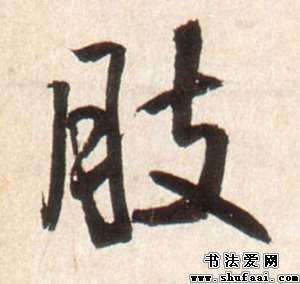 肢
书法爱网
www.shufaai.com